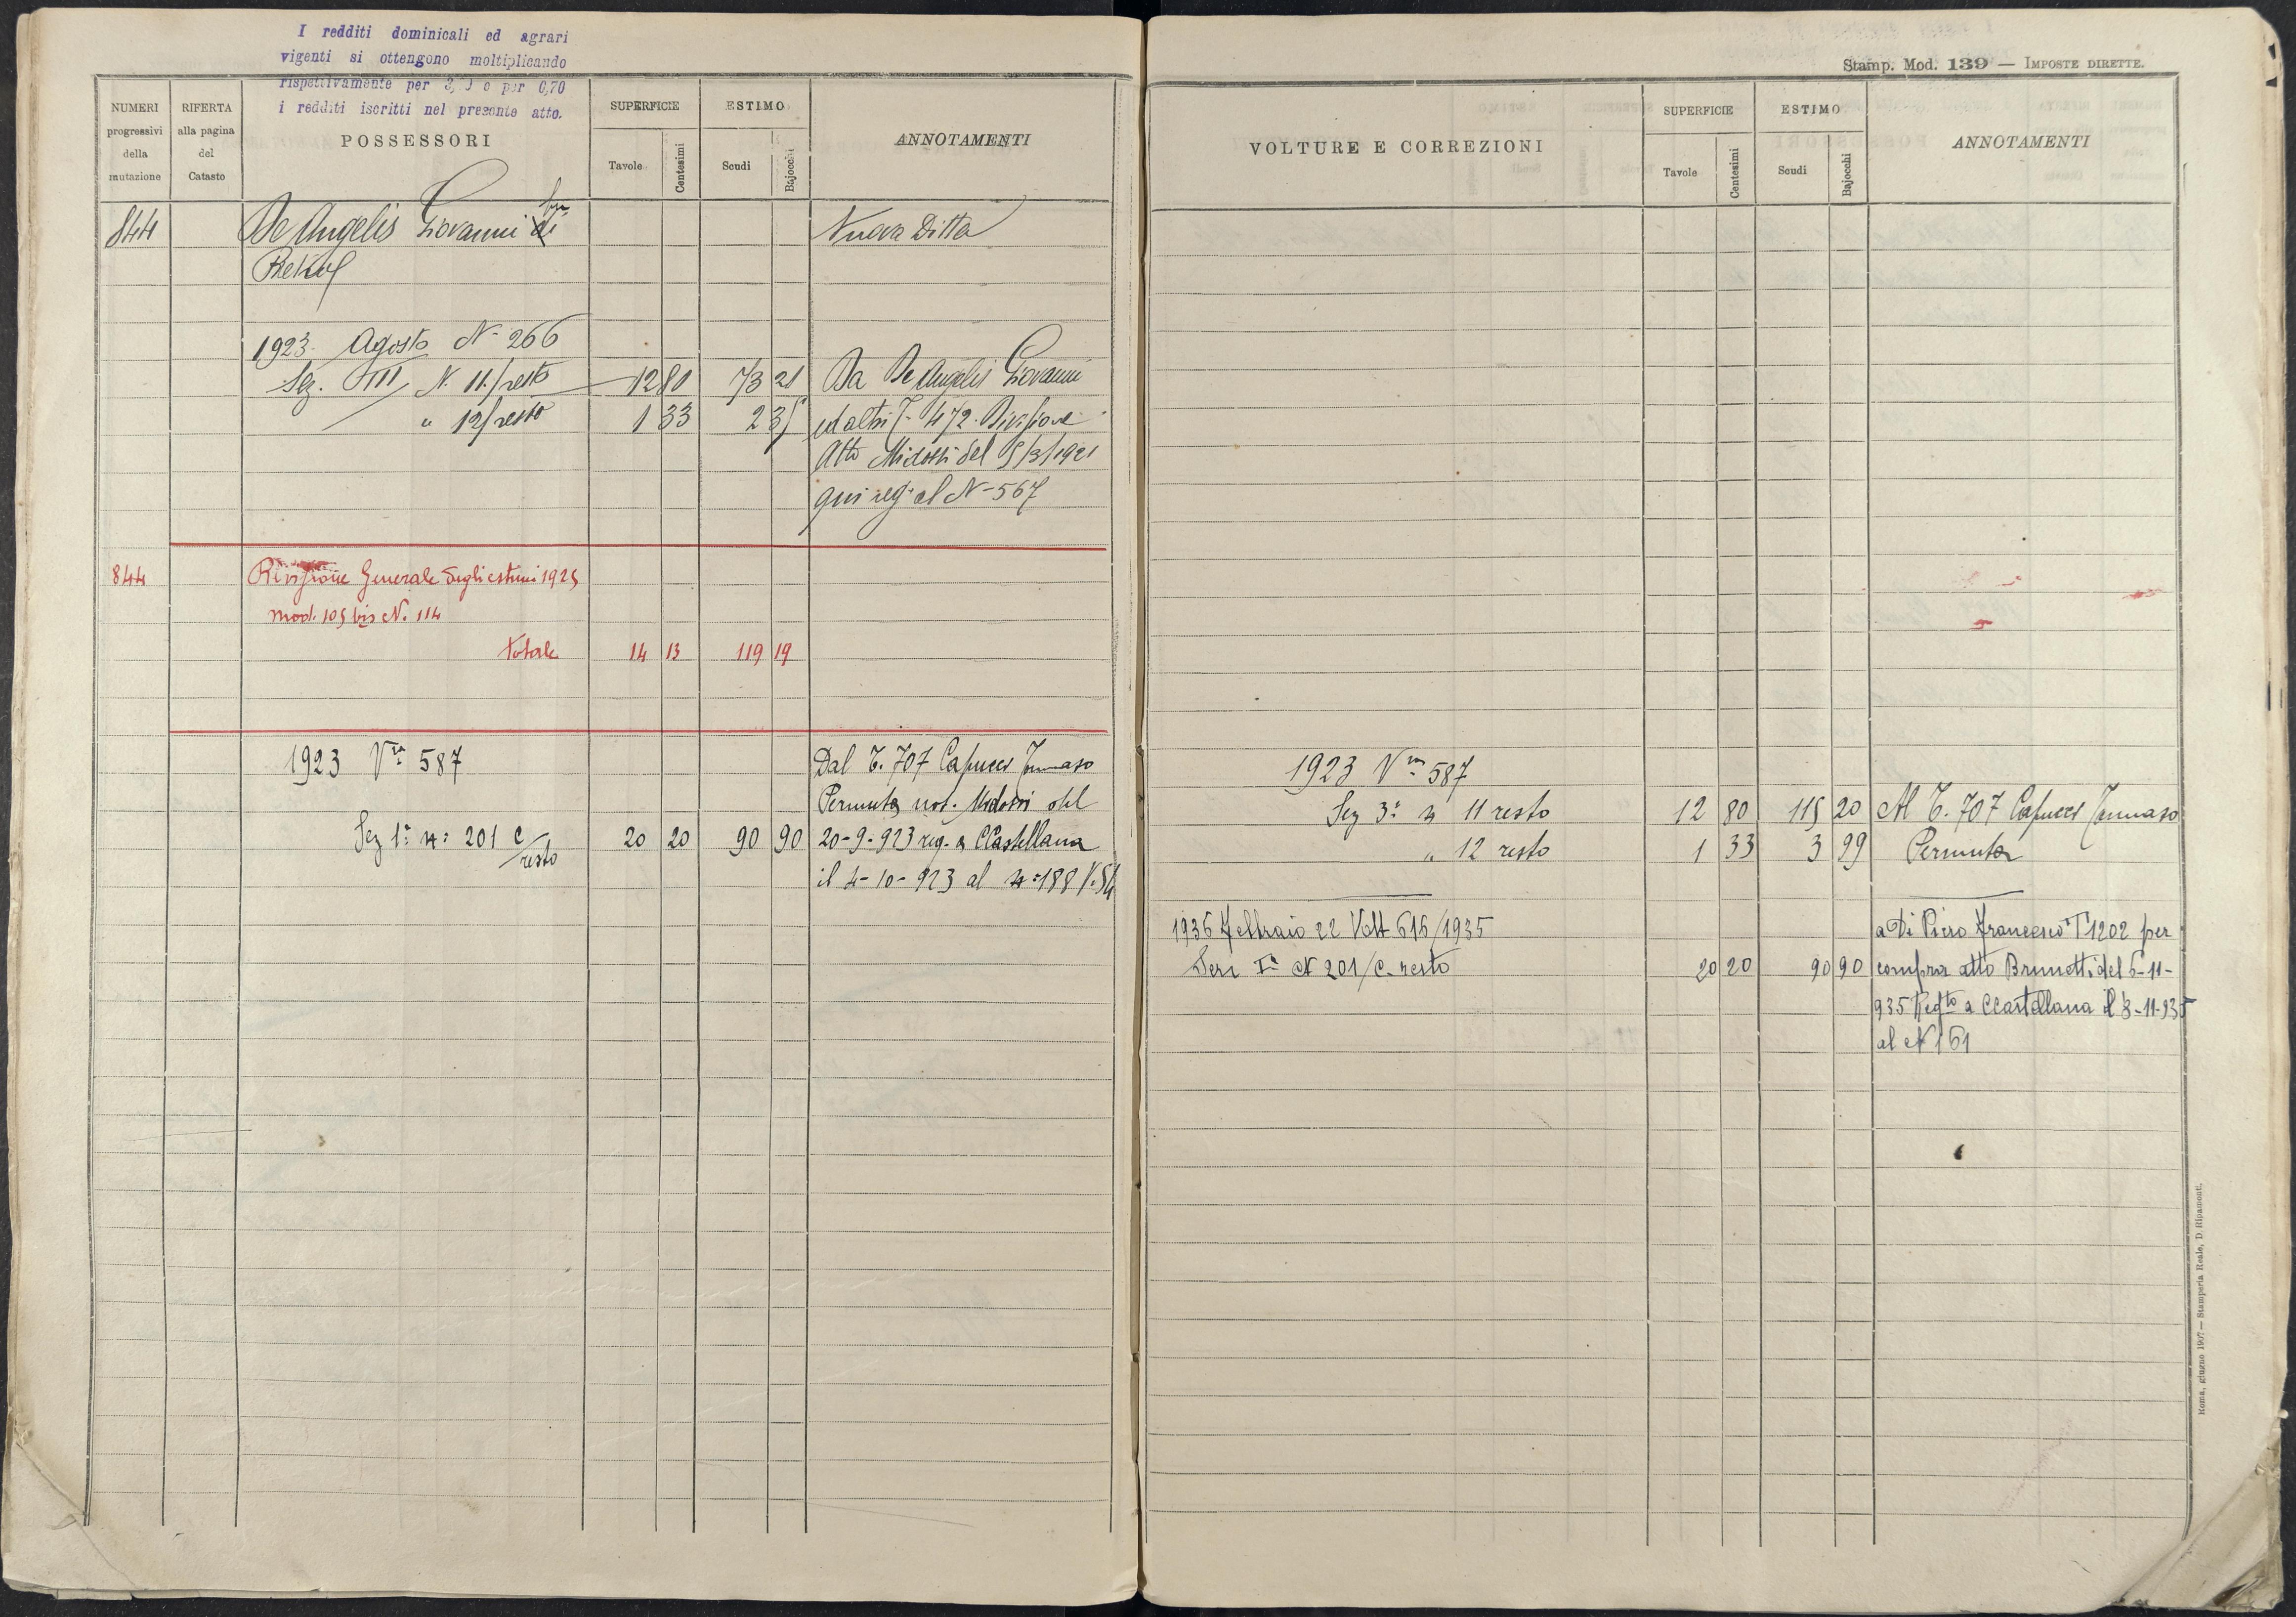 I redditi dominicali ed agrari
vigenti si ottengono moltiplicando
rispettivamente per 3, 0 e per 0,70
i redditi iscritti nel presente atto.
NUMERI progressivi della mutazione
RIFERTA alla pagina del Catasto
POSSESSORI
SUPERFICIE
Tavole Centesimi
ESTIMO
Scudi Bajocchi
ANNOTAMENTI
844 De Angelis Giovanni di fu Nuova Ditta
1923. Agosto N. 266
Sez. III N. 11/resto 12 80 73 21 Da De Angelis Giovanni
" 12/resto 1 33 2 35 ed altri T. 472. Divisione
Atto Midossi del 5/3/1921
qui reg. al N- 567
844 Revisione Generale degli estimi 1925
mod. 105 bis N. 114
totale 14 13 119 19
1923 Vra 587 Dal T. 707 Capucci Tommaso
Permuta not. Midossi del
Sez 1a n: 201 c/resto 20 20 90 90 20-9-923 reg. a CCastellana
il 4-10-923 al n: 188 V. 54
Stamp. Mod. 139 — IMPOSTE DIRETTE.
VOLTURE E CORREZIONI
SUPERFICIE
Tavole Centesimi
ESTIMO
Scudi Bajocchi
ANNOTAMENTI
1923 Vra 587
Sez 3a n 11 resto 12 80 115 20 Al T. 707 Capucci Tommaso
" 12 resto 1 33 3 99 Permuta
1936 Febbraio 22 Volt 616/1935 a Di Piero Francesco T 1202 per
Sez Ia N 201/c. resto 20 20 90 90 compra atto Brunetti del 6-11-
935 Regto a CCastellana il 8-11-935
al N 161
Roma, giugno 1907 — Stamperia Reale, D. Ripamonti.